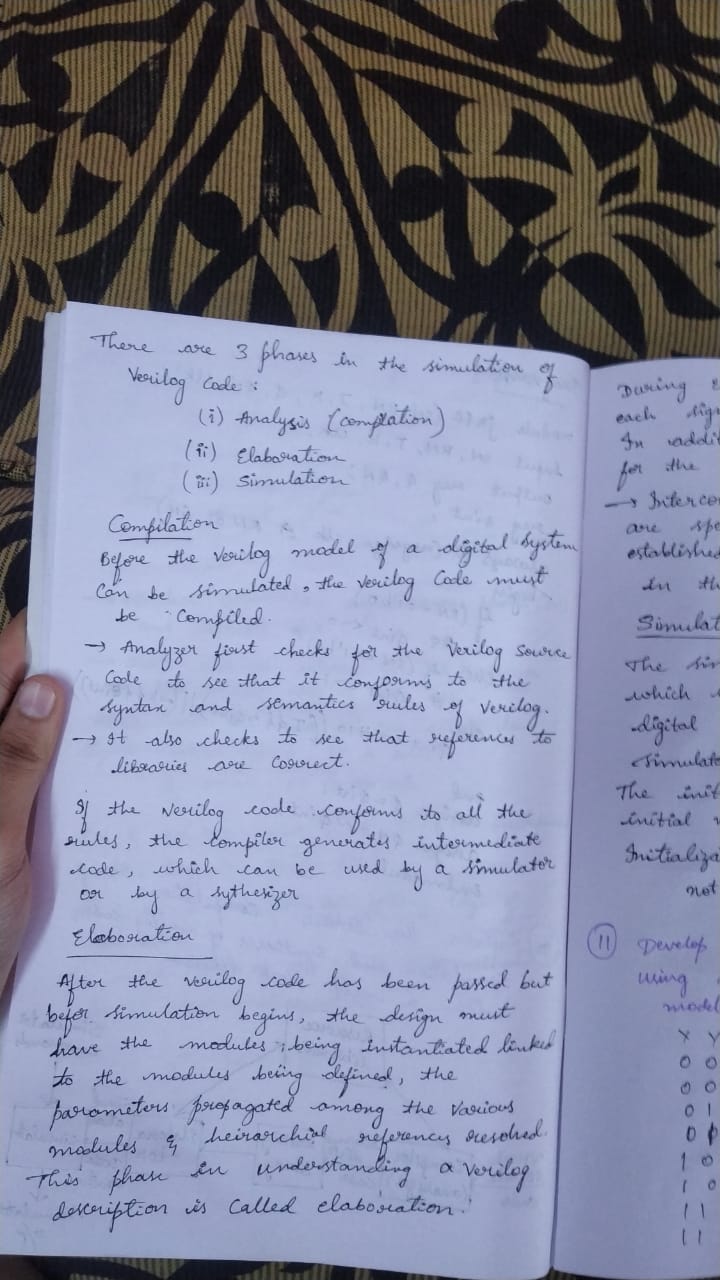 There are 3 phases in the simulation of
Verilog Code :
(i) Analysis (compilation)
(ii) Elaboration
(iii) Simulation
Compilation
Before the Verilog model of a digital System
Can be simulated, the Verilog Code must
be Compiled.
→ Analyzer first checks for the Verilog Source
Code to see that it conforms to the
syntax and semantics rules of Verilog.
→ It also checks to see that references to
libraries are Correct.
If the Verilog code conforms to all the
rules, the compiler generates intermediate
code, which can be used by a simulator
or by a sythesizer
Elaboration
After the verilog code has been passed but
befor simulation begins, the design must
have the modules being instantiated linked
to the modules being defined, the
parameters propagated among the various
modules & heirarchial references resolved.
This phase in understanding a verilog
description is called elaboration.
During
each
In
for the
→
are
established
in
The
which
digital
The
initial
not
11 Develop
using
model
X Y
0 0
0 0
0 1
0
1 0
1 0
1 1
1 1